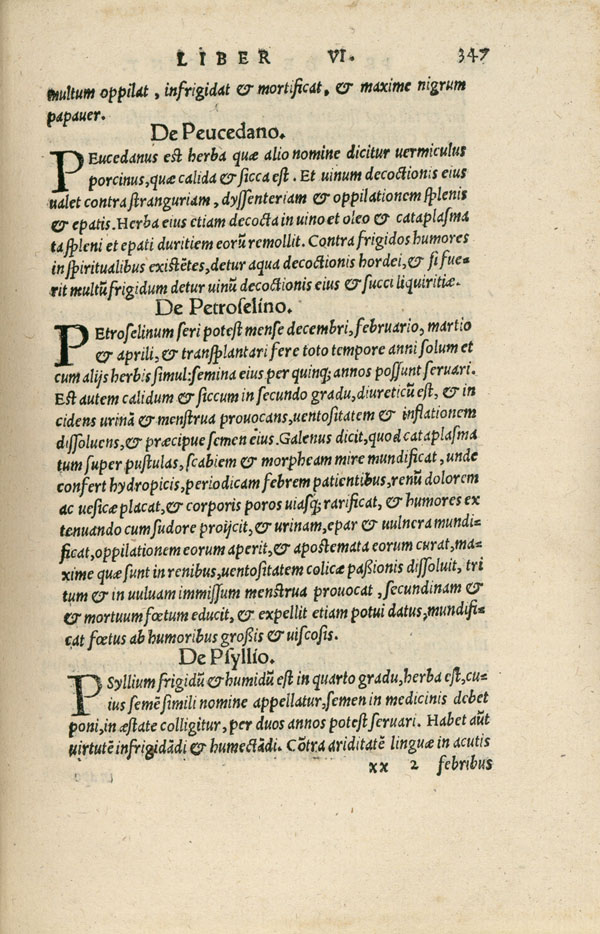 LIBER VI. 347
multum oppilat, infrigidat & mortificat, & maxime nigrum
papauer.
De Peucedano.
PEucedanus est herba quæ alio nomine dicitur uermiculus
porcinus, quæ calida & sicca est. Et uinum decoctionis eius
ualet contra stranguriam, dyssenteriam & oppilationem splenis
& epatis. Herba eius etiam decocta in uino et oleo & cataplasma
ta spleni et epati duritiem eorũ remollit. Contra frigidos humores
in spiritualibus existẽtes, detur aqua decoctionis hordei, & si fue-
rit multũ frigidum detur uinũ decoctionis eius & succi liquiritiæ.
De Petroselino.
PEtroselinum seri potest mense decembri, februario, martio
& aprili, & transplantari fere toto tempore anni solum et
cum alijs herbis simul: semina eius per quinq; annos possunt seruari.
Est autem calidum & siccum in secundo gradu, diureticũ est, & in
cidens urinã & menstrua prouocans, uentositatem & inflationem
dissoluens, & præcipue semen eius. Galenus dicit, quod cataplasma
tum super pustulas, scabiem & morpheam mire mundificat, unde
confert hydropicis, periodicam febrem patientibus, renũ dolorem
ac uesicæ placat, & corporis poros uiasq; rarificat, & humores ex
tenuando cum sudore proijcit, & urinam, epar & uulnera mundi-
ficat, oppilationem eorum aperit, & apostemata eorum curat, ma-
xime quæ sunt in renibus, uentositatem colicæ passionis dissoluit, tri
tum & in uuluam immissum menstrua prouocat, secundinam &
& mortuum fœtum educit, & expellit etiam potui datus, mundifi-
cat fœtus ab humoribus grossis & uiscosis.
De Psyllio.
PSyllium frigidũ & humidũ est in quarto gradu, herba est, cu-
ius semẽ simili nomine appellatur, semen in medicinis debet
poni, in æstate colligitur, per duos annos potest seruari. Habet aũt
uirtutẽ infrigidãdi & humectãdi. Cõtra ariditatẽ linguæ in acutis
xx 2 febribus